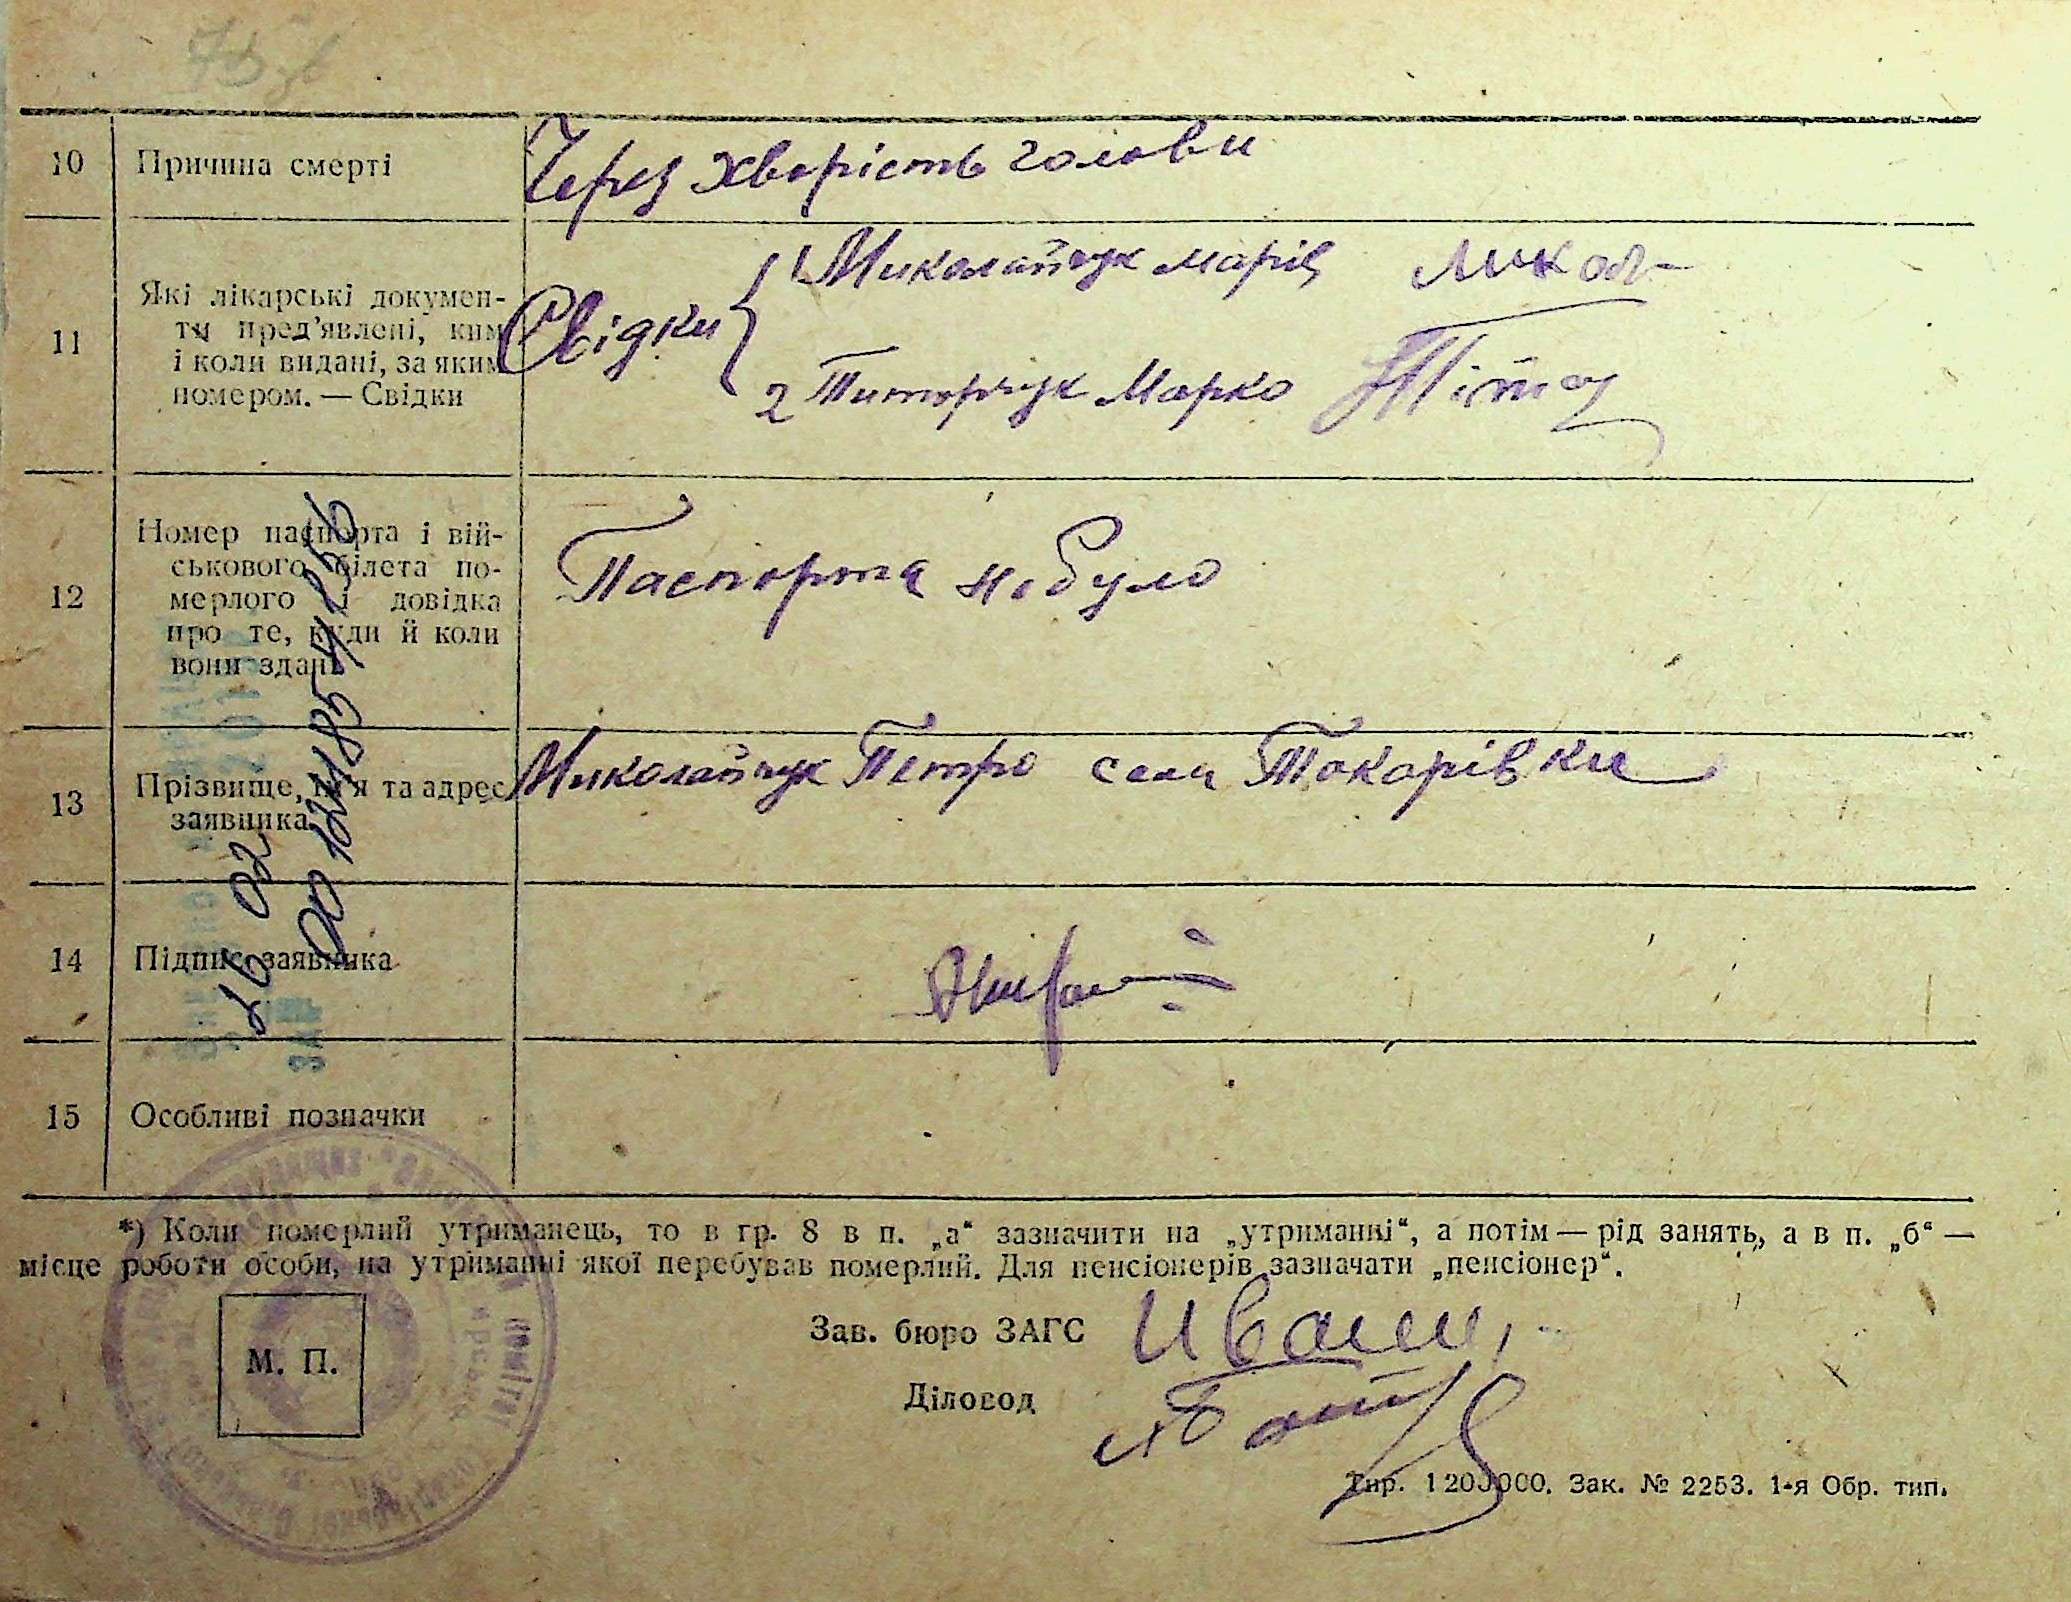 10 Причина смерті Через хворість голови
11 Які лікарські докумен-
ти пред'явлені, ким
і коли видані, за яким
номером. — Свідки
Свідки
1 Миколайчук Марія
2 Титорчук Марко
12 Номер паспорта і вій-
ськового білета по-
мерлого і довідка
про те, куди й коли
вони здані
Паспорта небуло
13 Прізвище, ім'я та адрес
заявника
Миколайчук Петро села Токарівки
14 Підпис заявника
15 Особливі позначки
26 02
00124185
*) Коли померлий утриманець, то в гр. 8 в п. „а“ зазначити на „утриманні“, а потім — рід занять, а в п. „б“ —
місце роботи особи, на утриманні якої перебував померлий. Для пенсіонерів зазначати „пенсіонер“.
М. П.
Зав. бюро ЗАГС
Діловод
Тир. 1200000. Зак. № 2253. 1-я Обр. тип.